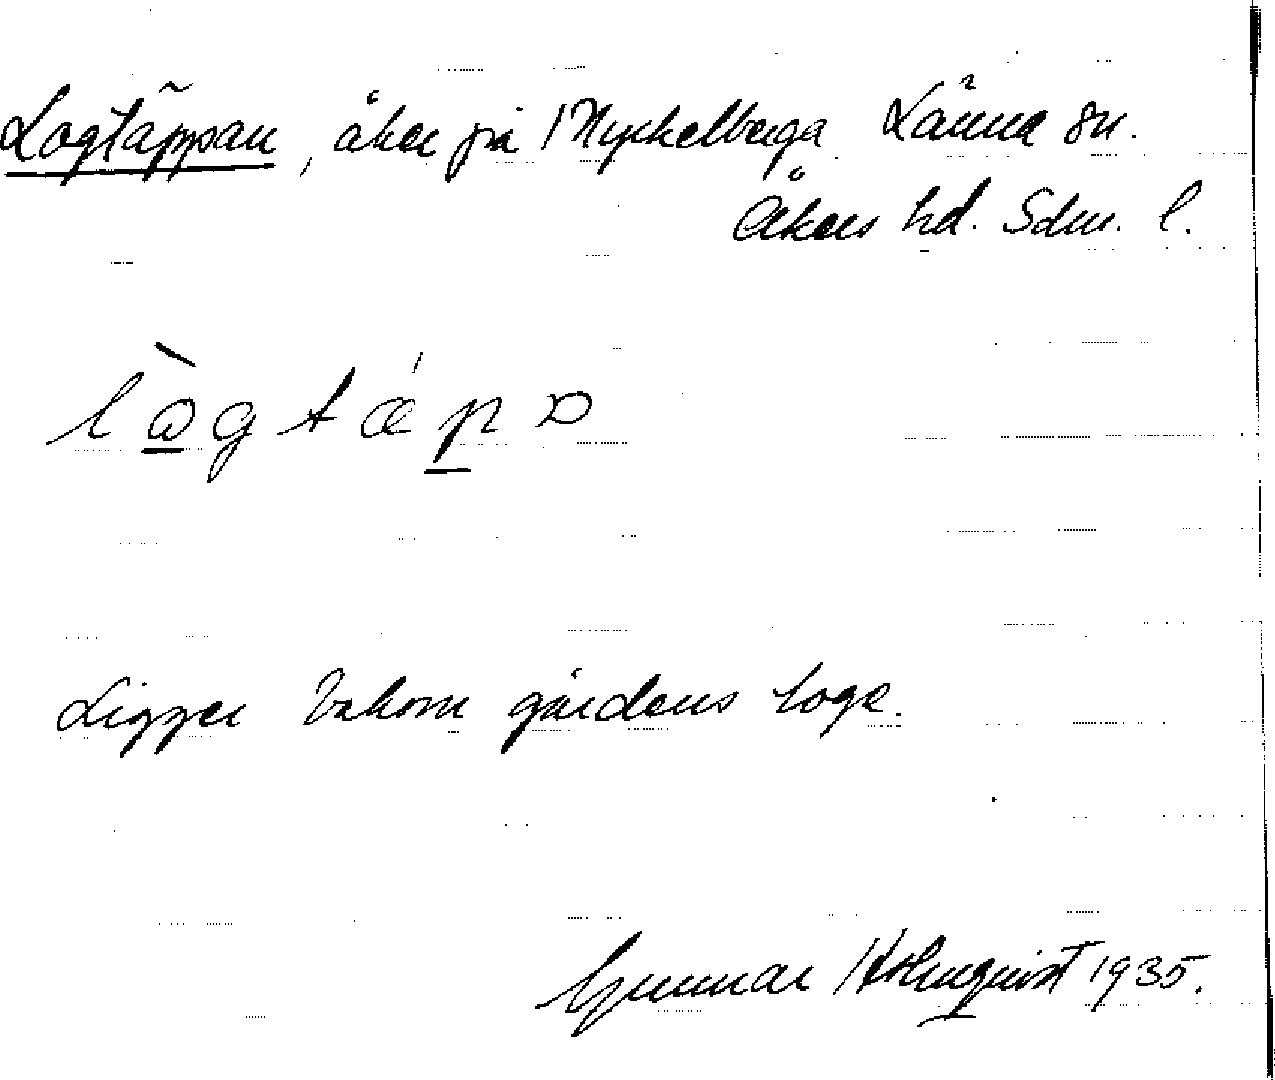 Logtäppan, åker på Myckelberga Länna sn.
Åkers hd. Sdm. l.
lògtǽpa
Ligger bakom gårdens loge.
Gunnar Holmquist 1935.